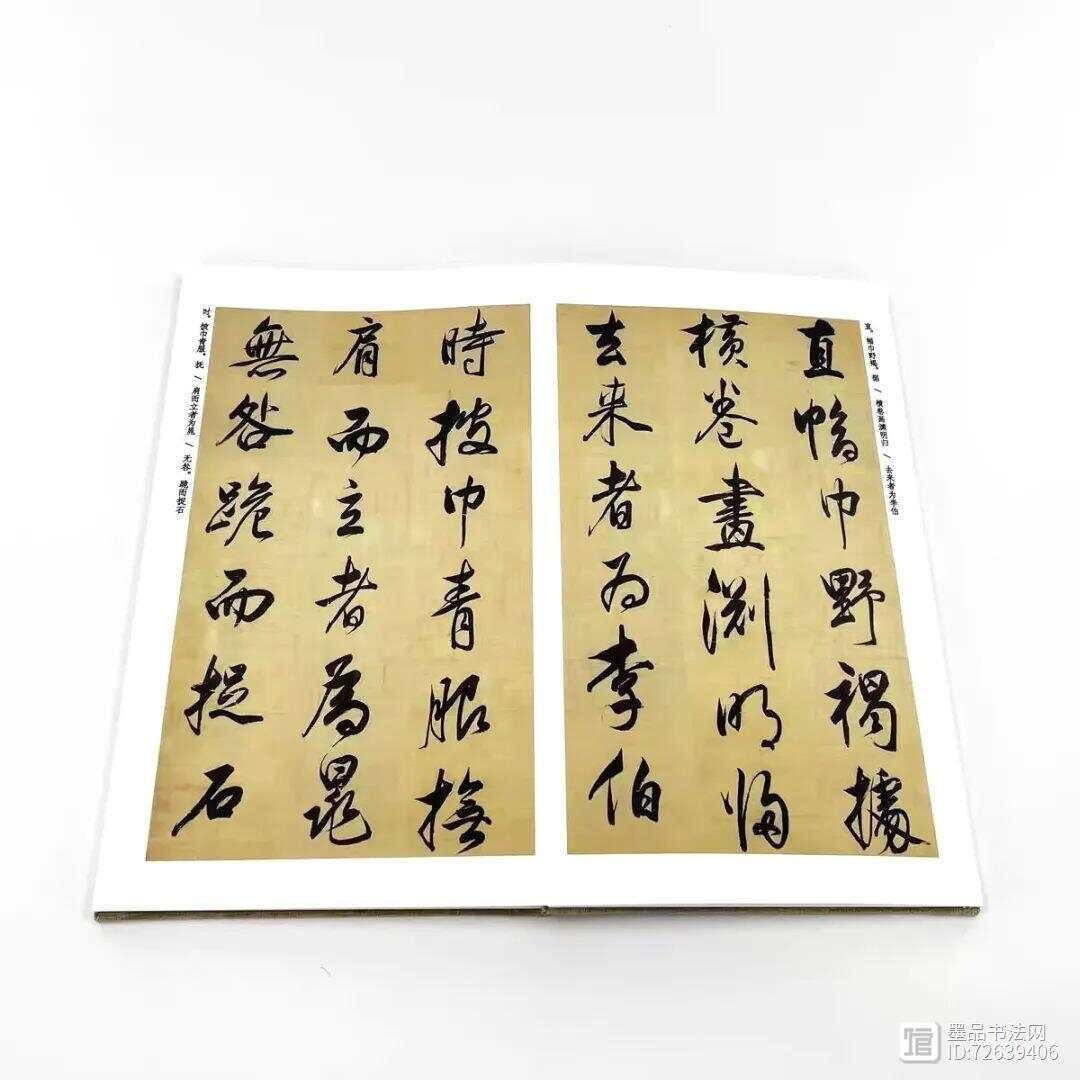 直幅巾野褐據
橫卷畫淵明歸
去来者为李伯
直。幅巾野褐。据 \ 横卷画渊明归 \ 去来者为李伯
時披巾青服撫
肩而立者為晁
無咎跪而捉石
时。披巾青服。抚 \ 肩而立者为晁 \ 无咎。跪而捉石
墨品书法网
ID:72639406